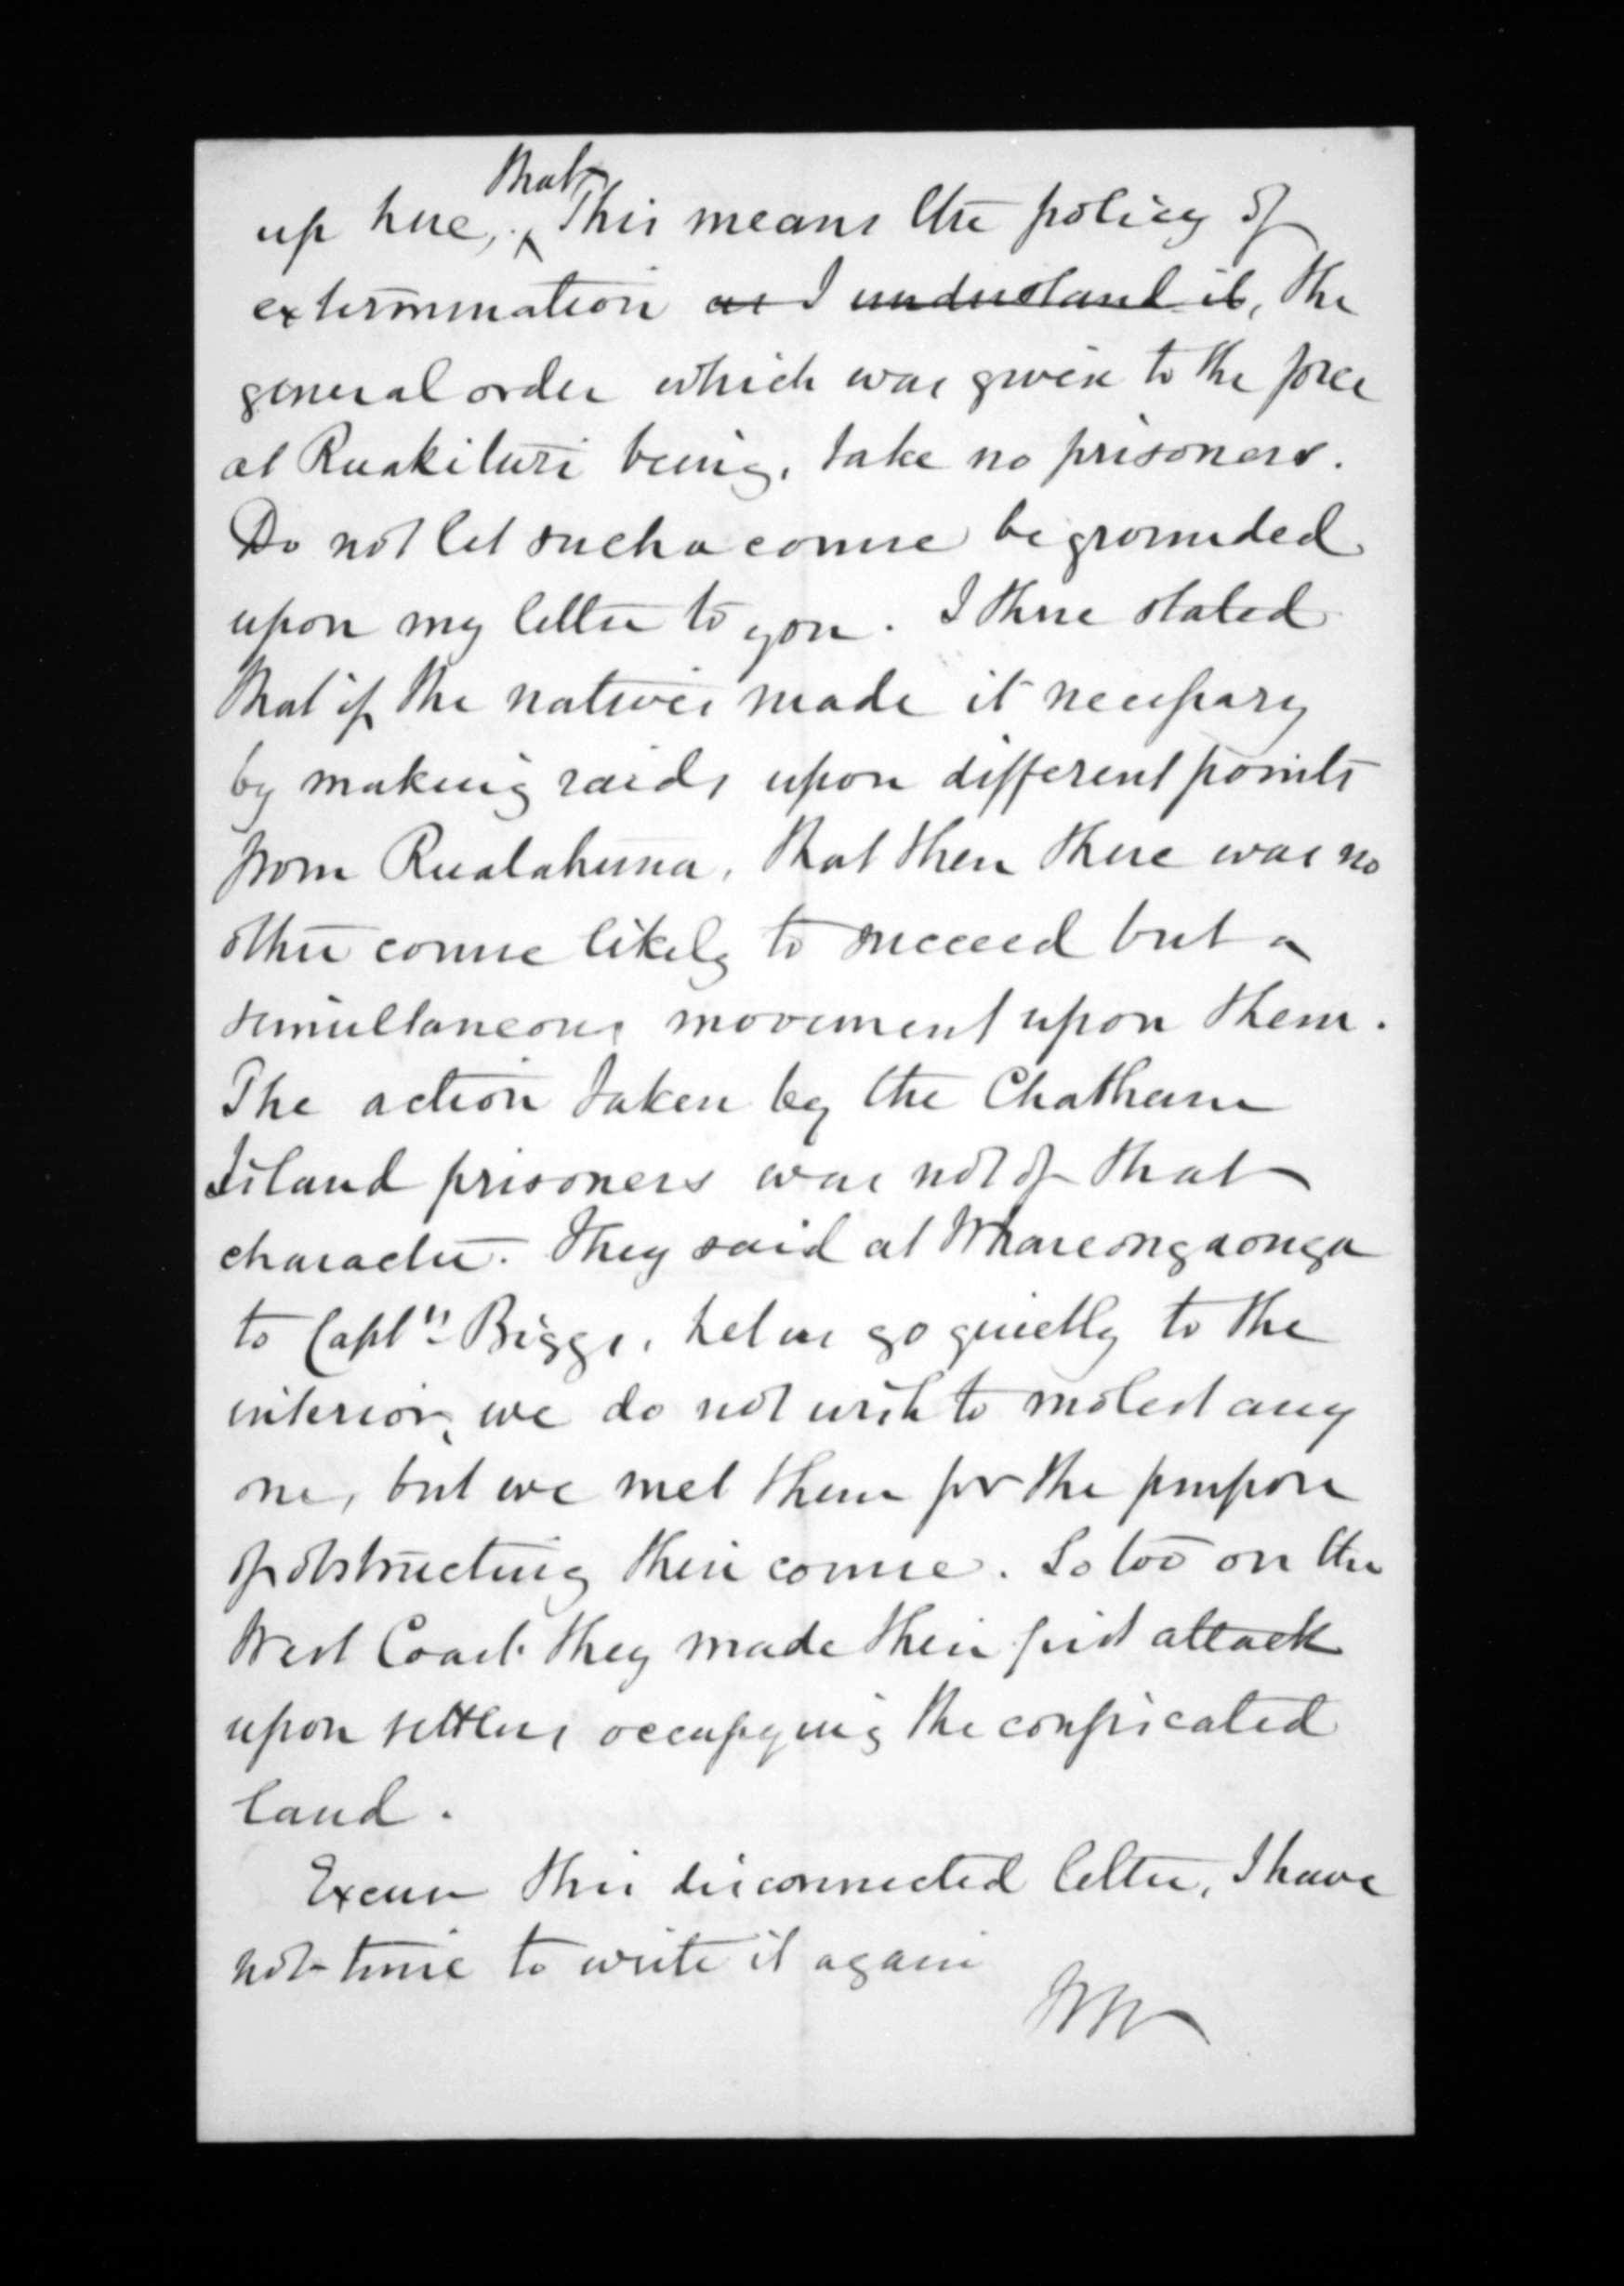 that
up here, . ‸ This means the policy of
extermination as I understand it, the
general order which was given to the force
at Ruakituri being, take no prisoners.
Do not let such a course be grounded
upon my letter to you. I there stated
that if the natives made it necessary
by making raids upon different points
from Ruatahuna, that then there was no
other course likely to succeed but a
simultaneous movement upon them.
The action taken by the Chatham
Island prisoners was not of that
character. They said at Whareongaonga
to Captn Biggs, Let us go quietly to the
interior, we do not wish to molest any
one, but we met them for the purpose
of obstructing their course. So too on the
West Coast they made their first attack
upon settlers occupying the confiscated
land.
Excuse this disconnected letter, I have
not time to write it again
WW